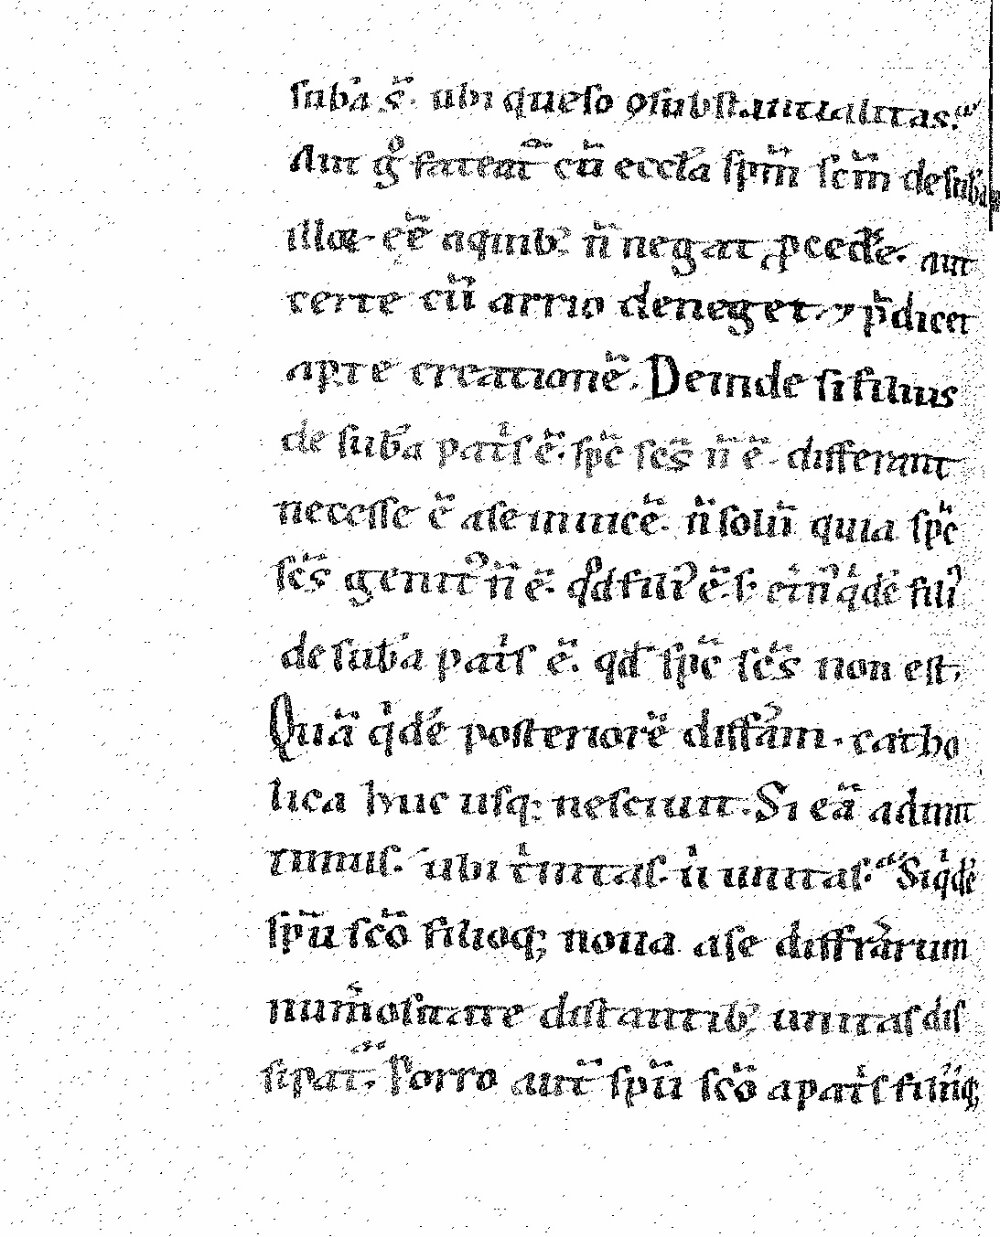 subã s̃. ubi queso ꝯsubstantialitas.
Aut gͦ fateat᷑ cũ eccła spm̃ scm̃ de subã
illoꝝ eẽ a quibꝫ ñ negat ꝓcedẽ. aut
certe cũ arrio deneget, ⁊ p̃dicet
apte creationẽ. Deinde si filius
de subã patͥs ẽ. spc̃ scs̃ ñ ẽ. differant
necesse ẽ a se inuicẽ. ñ solũ quia spc̃
scs̃ genitꝰ ñ ẽ. qͦd filiꝰ ẽ. sꝫ
de subã patͥs ẽ. qd̃ spc̃ scs̃ non est.
Quã qͥdẽ posteriorẽ diffãm. catho
lica huc usqꝫ nesciuit. Si eã admit
timus. ubi tͥnitas. uͥ unitas. Siqͥdẽ
spũ scõ filioqꝫ noua a se diffrãrum
num̃ositate distantibꝫ unitas dis
sipat᷑. Porro aut̃ spũ scõ a patͥs filiiqꝫ